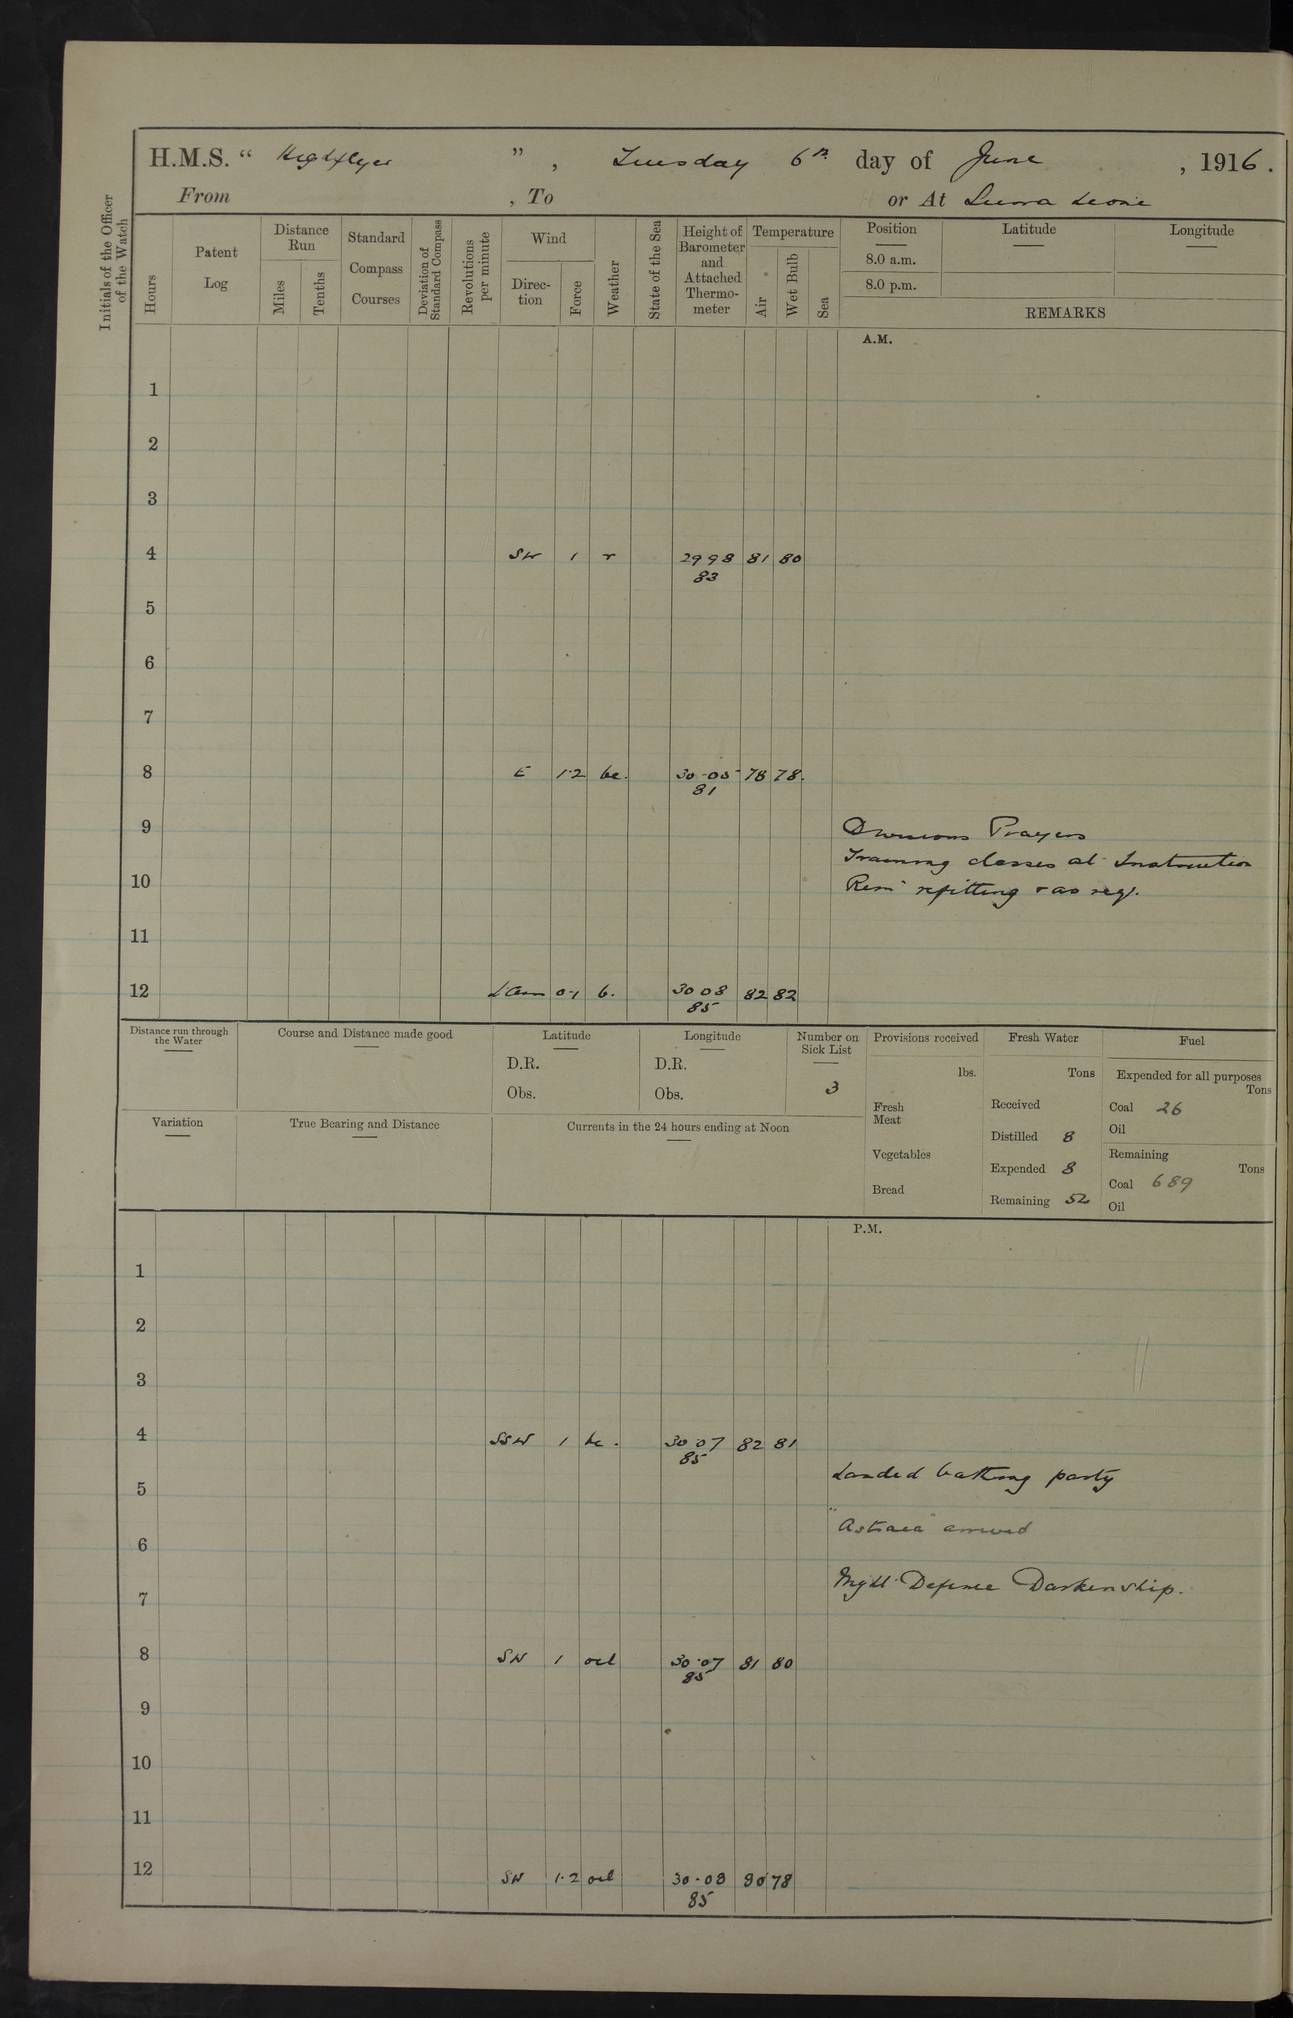 H.M.S. " Highflyer ", Tuesday 6th day of June, 1916.
From , To or At Sierra Leone
Initials of the Officer of the Watch
Hours
Patent Log
Distance Run
Miles
Tenths
Standard Compass Courses
Deviation of Standard Compass
Revolutions per minute
Wind
Direction
Force
Weather
State of the Sea
Height of Barometer and Attached Thermometer
Temperature
Air
Wet Bulb
Sea
Position Latitude Longitude
8.0 a.m.
8.0 p.m.
REMARKS
A.M.
1
2
3
4 SW 1 r 29 98 81 80
83
5
6
7
8 E 1·2 bc. 30·05 78 78.
81
9 Divisions Prayers
Training classes at Instruction
10 Rem refitting + as req.
11
12 0-1 b. 30 08 82 82
85
Distance run through the Water
Course and Distance made good
Latitude
D.R.
Obs.
Longitude
D.R.
Obs.
Number on Sick List
3
Provisions received
lbs.
Fresh Meat
Vegetables
Bread
Fresh Water
Tons
Received
Distilled 8
Expended 8
Remaining 52
Fuel
Expended for all purposes
Tons
Coal 26
Oil
Remaining
Tons
Coal 689
Oil
Variation
True Bearing and Distance
Currents in the 24 hours ending at Noon
P.M.
1
2
3
4 SSW 1 bc. 30 07 82 81
85
Landed bathing party
5
"Astraea" arrived
6
Night Defence Darken ship.
7
8 SW 1 ocl 30·07 81 80
85
9
10
11
12 SW 1·2 ocl 30·08 80 78
85